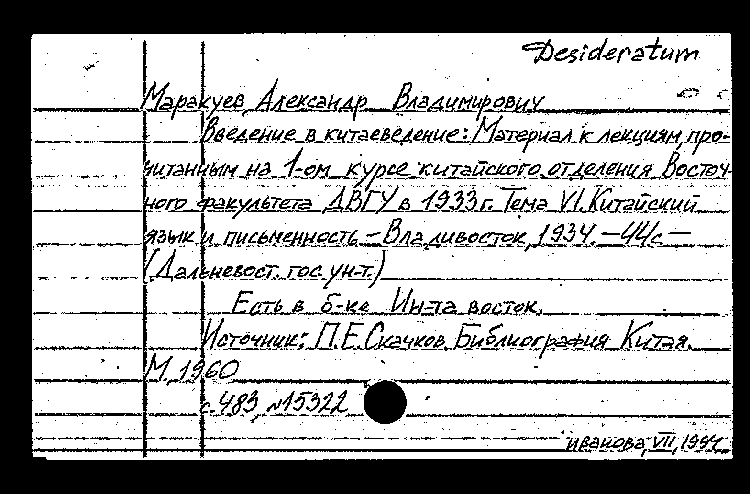 Desideratum
Маракуев Александр Владимирович
Введение в китаеведение: Материал к лекциям, про-
читанным на 1-ом курсе китайского отделения Восточ-
ного факультета ДВГУ в 1933 г. Тема VI. Китайский
язык и письменность – Владивосток, 1934. – 44 с –
(Дальневост. гос. ун-т.)
Есть в б-ке Ин-та восток.
Источник: П.Е. Скачков. Библиография Китая.
М., 1960
с. 483, №15322
Иванова, VII,